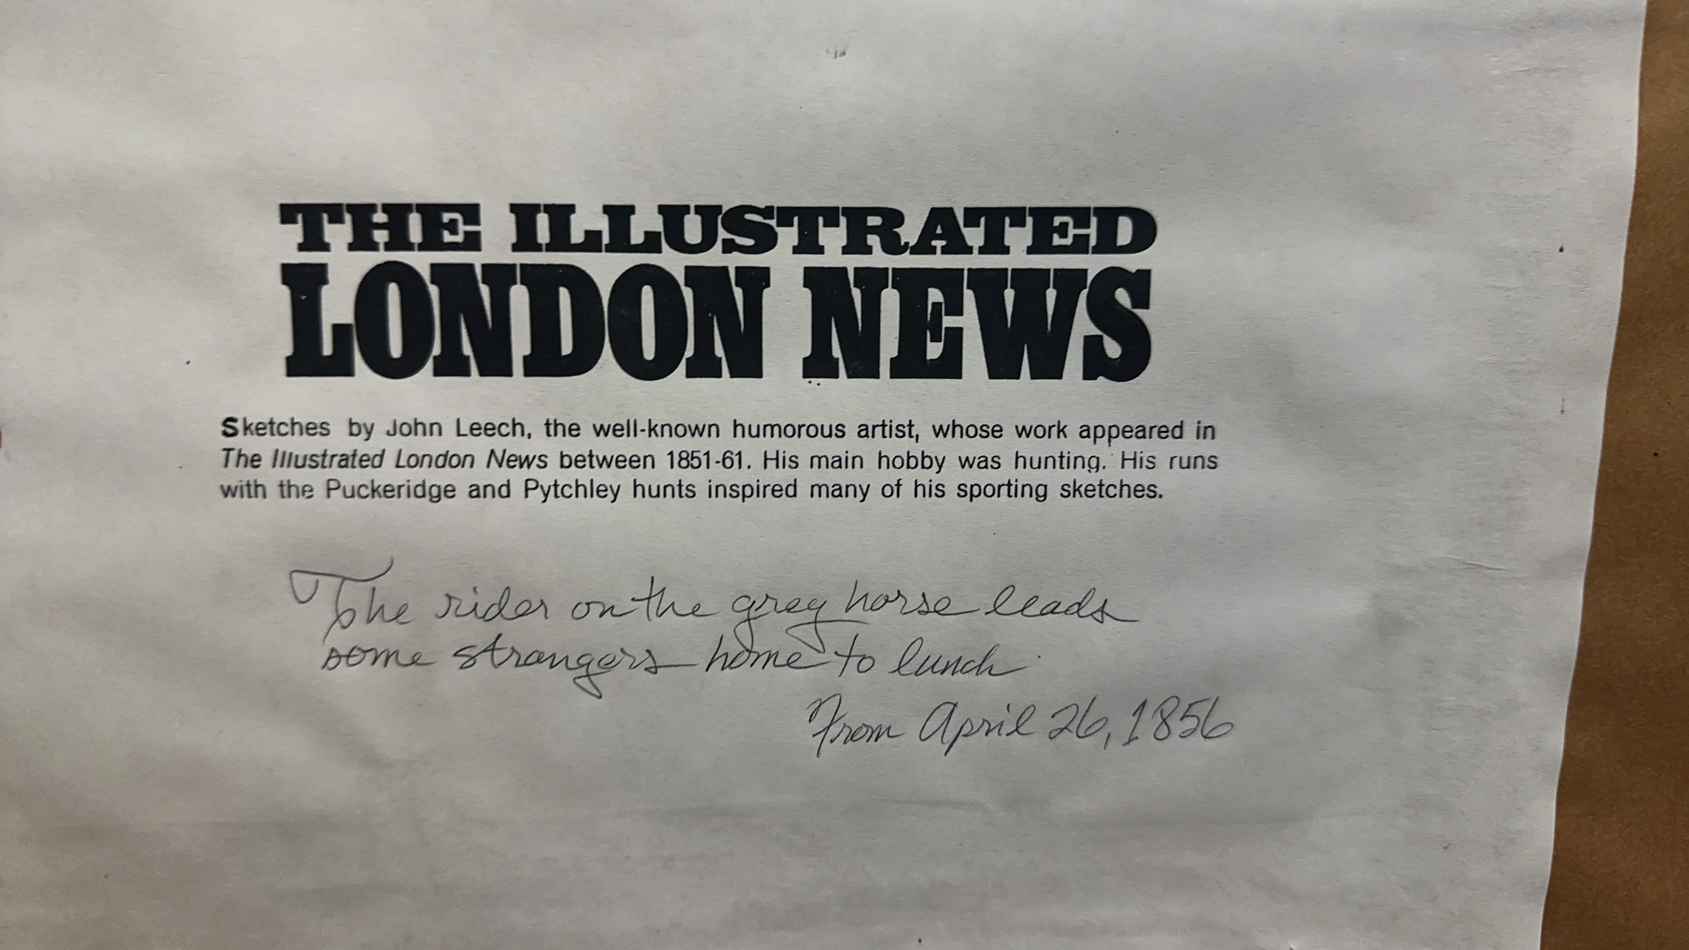 THE ILLUSTRATED
LONDON NEWS
Sketches by John Leech, the well-known humorous artist, whose work appeared in
The Illustrated London News between 1851-61. His main hobby was hunting. His runs
with the Puckeridge and Pytchley hunts inspired many of his sporting sketches.
The rider on the grey horse leads
some strangers home to lunch.
From April 26, 1856